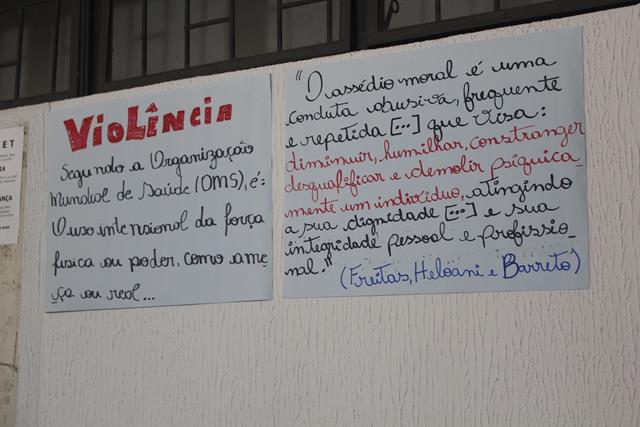 ET
VIOLÊNCIA
Segundo a Organização
Mundial de Saúde (OMS), é:
O uso intencional da força
física ou poder, como ame
ça ou real...
"O assédio moral é uma
conduta abusiva, frequente
e repetida [...] que visa:
diminuir, humilhar, constranger
desqualificar e demolir psiquica_
mente um indivíduo, atingindo
a sua dignidade [...] e sua
integridade pessoal e profissio_
nal."
(Freitas, Heloani e Barreto)